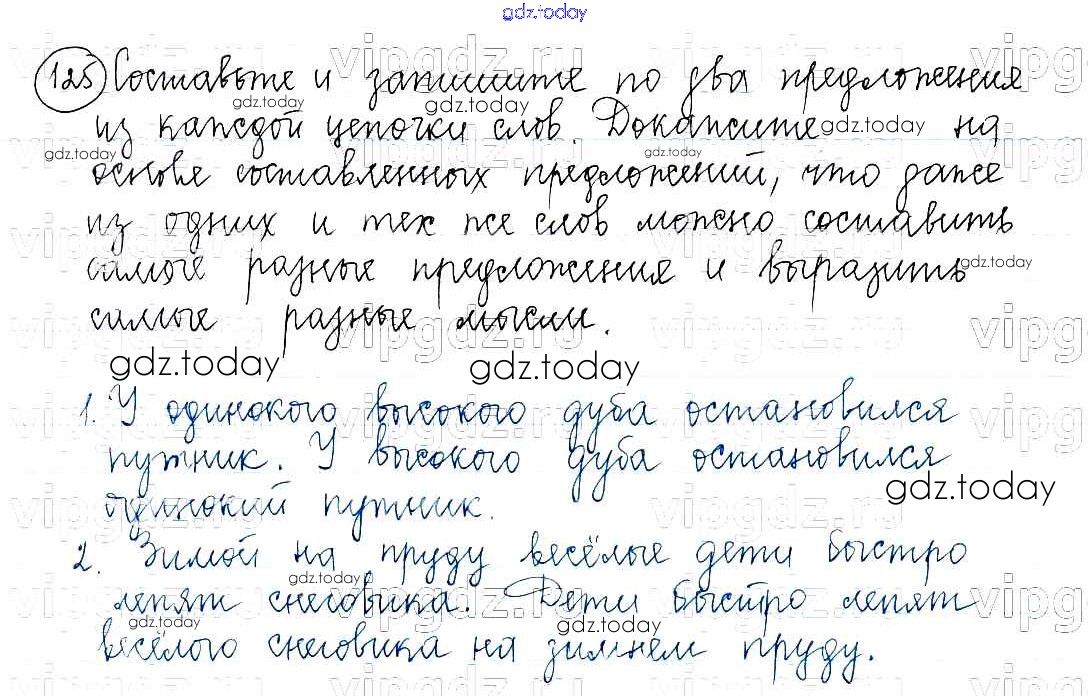 gdz.today
125 Составьте и запишите по два предложения
gdz.today gdz.today
из каждой цепочки слов. Докажите gdz.today на
gdz.today gdz.today
основе составленных предложений, что даже
из одних и тех же слов можно составить
самые разные предложения и выразить gdz.today
самые разные мысли.
gdz.today gdz.today
1. У одинокого высокого дуба остановился
путник. У высокого дуба остановился
gdz.today
одинокий путник.
2. Зимой на пруду весёлые дети быстро
gdz.today
лепят снеговика. Дети быстро лепят
gdz.today gdz.today
весёлого снеговика на зимнем пруду.
vipgdz.ru